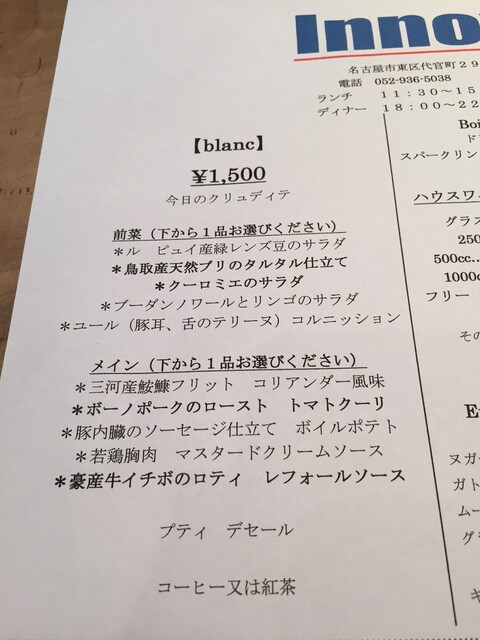 Inno
名古屋市東区代官町２９
電話　052-936-5038
ランチ　１１：３０～１５
ディナー　１８：００～２２
【blanc】
¥1,500
今日のクリュディテ
前菜（下から１品お選びください）
＊ル　ピュイ産緑レンズ豆のサラダ
＊鳥取産天然ブリのタルタル仕立て
＊クーロミエのサラダ
＊ブーダンノワールとリンゴのサラダ
＊ユール（豚耳、舌のテリーヌ）コルニッション
メイン（下から１品お選びください）
＊三河産鮟鱇フリット　コリアンダー風味
＊ボーノポークのロースト　トマトクーリ
＊豚内臓のソーセージ仕立て　ボイルポテト
＊若鶏胸肉　マスタードクリームソース
＊豪産牛イチボのロティ　レフォールソース
プティ　デセール
コーヒー又は紅茶
Boi
ド
スパークリン
ハウスワ
グラス
250
500cc..
1000c
フリー
その
ヌガ
ガト
ムー
グ